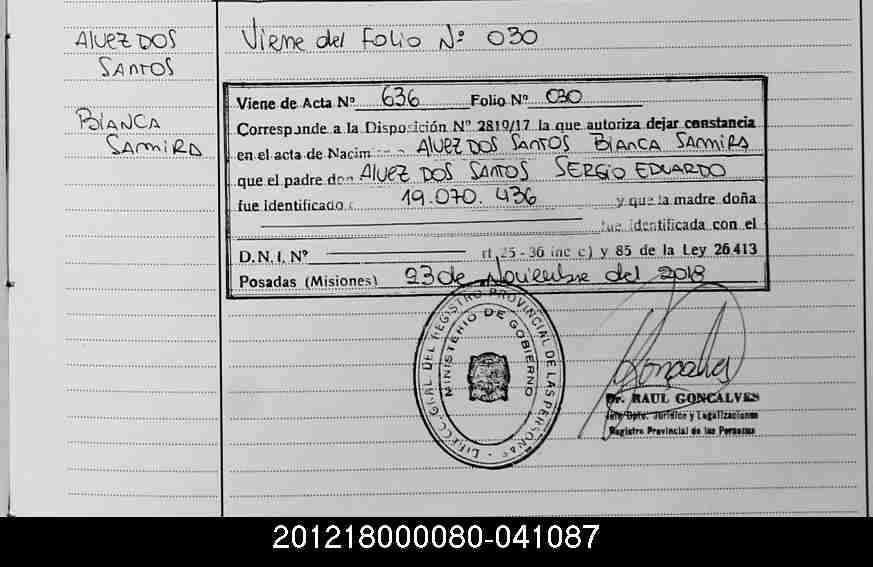 Aluez Dos
Santos
Bianca
Samira
Viene del Folio Nº 030
Viene de Acta Nº 636 Folio Nº 030
Corresponde a la Disposición Nº 2819/17 la que autoriza dejar constancia
en el acta de Nacim Aluez Dos Santos Bianca Samira
que el padre don Aluez Dos Santos Sergio Eduardo
fue identificado 19.070.436 y que la madre doña
fue identificada con el
D.N.I. Nº rt. 25 - 36 inc c) y 85 de la Ley 26413
Posadas (Misiones) 23 de Noviembre del 2018
DIRECC. GRAL. DEL REGISTRO PROVINCIAL DE LAS PERSONAS
MINISTERIO DE GOBIERNO
Dr. RAUL GONCALVES
Jefe Dpto. Jurídico y Legalizaciones
Registro Provincial de las Personas
201218000080-041087